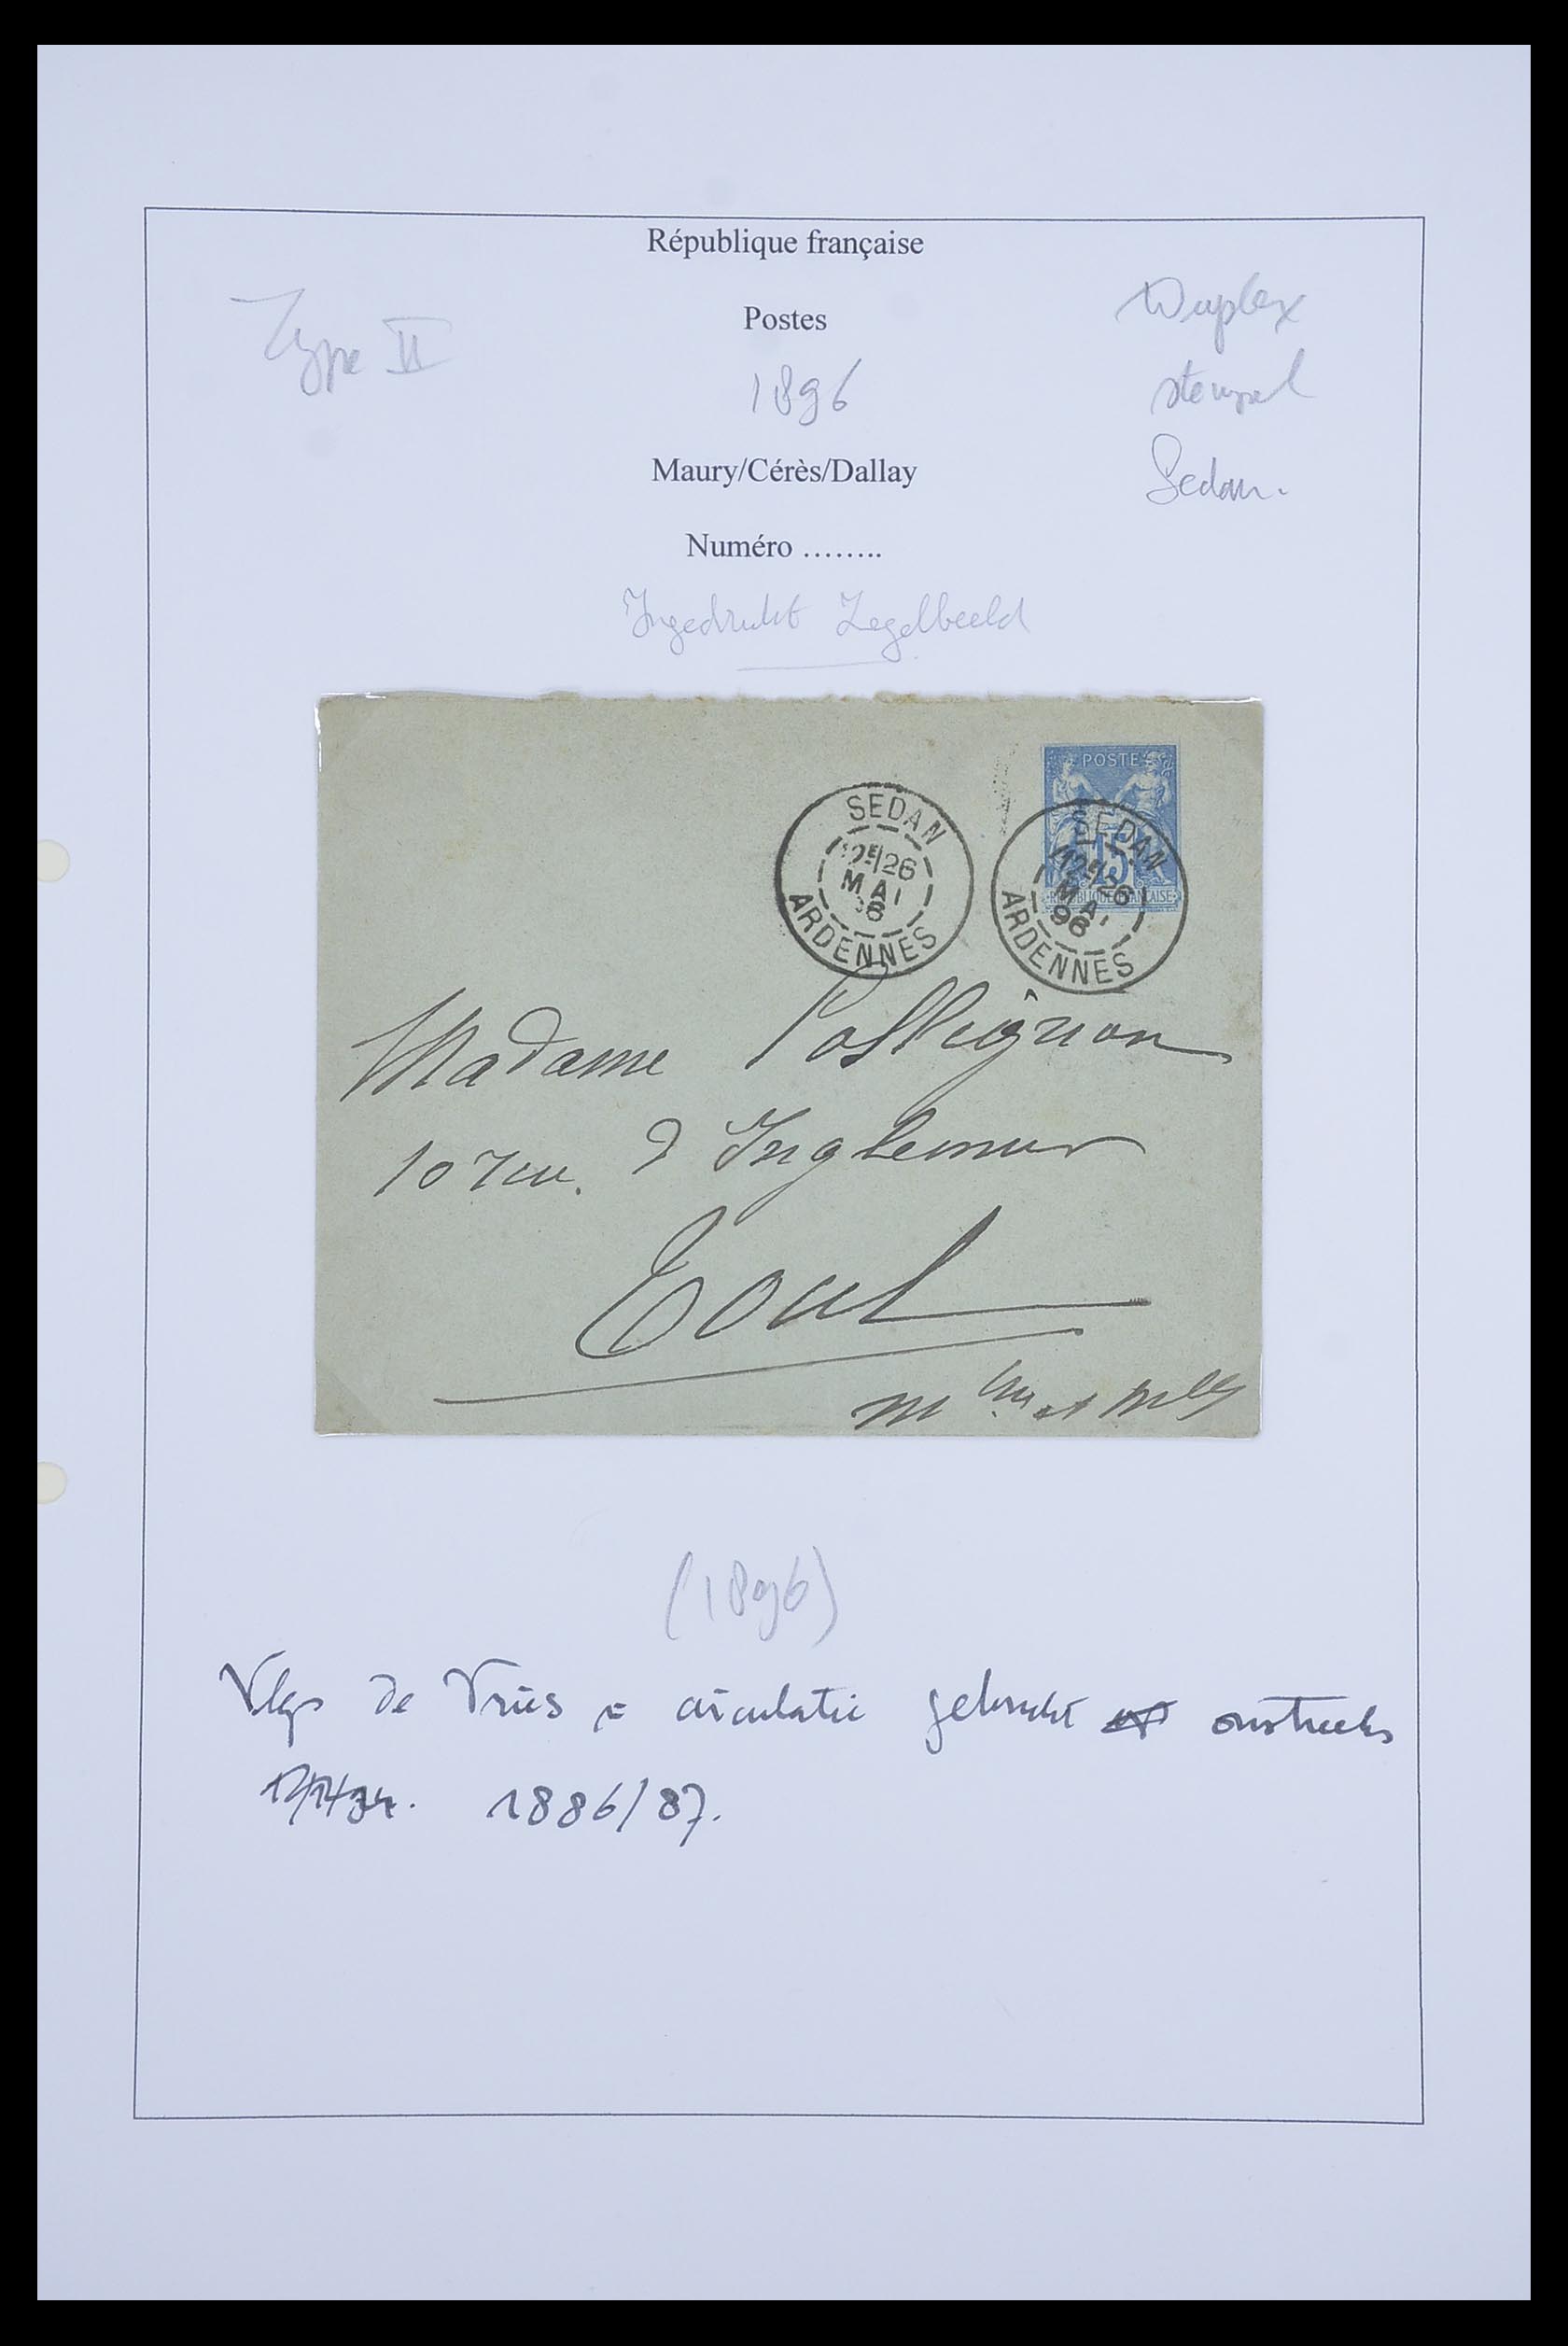 République française
Type II
Postes
Duplex
1896
stempel
Maury/Cérès/Dallay
Sedan.
Numéro ........
Ingedrukt Zegelbeeld
POSTE
15
REPUBLIQUE FRANÇAISE
SEDAN
12E/26
MAI
96
ARDENNES
SEDAN
12E/26
MAI
96
ARDENNES
Madame
10 rue. d'Inglemur
Toul
(1896)
Vlgs de Vries = circulatie gebruikt omstreeks
1886/87.